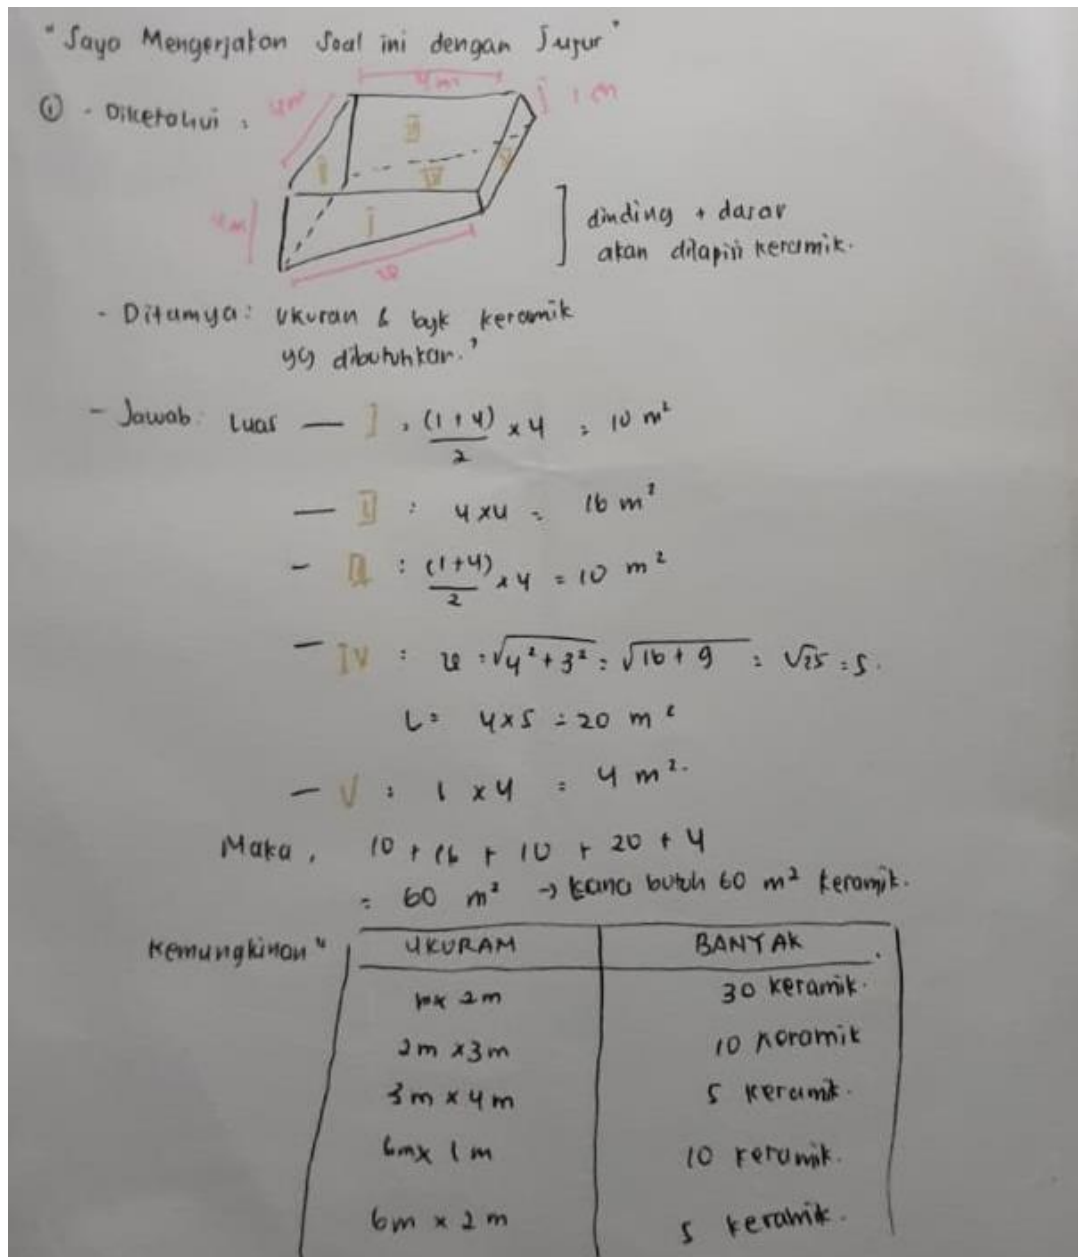 "Saya Mengerjakan Soal ini dengan Jujur"
① - Diketahui :
4m
4m
1 m
II
I
IV
V
4m
I
dinding + dasar
akan dilapisi keramik.
- Ditanya: Ukuran & byk keramik
yg dibutuhkan.?
- Jawab: Luas — I : (1+4)/2 × 4 = 10 m²
— II : 4 x 4 = 16 m²
- III : (1+4)/2 x 4 = 10 m²
- IV : = √4²+3² = √16+9 = √25 = 5.
L = 4 x 5 = 20 m²
- V : 1 x 4 = 4 m².
Maka, 10 + 16 + 10 + 20 + 4
= 60 m² → butuh 60 m² keramik.
Kemungkinan"
UKURAN BANYAK
x 2m 30 keramik.
2m x 3m 10 keramik
3m x 4m 5 keramik.
6m x 1m 10 keramik.
6m x 2m 5 keramik.